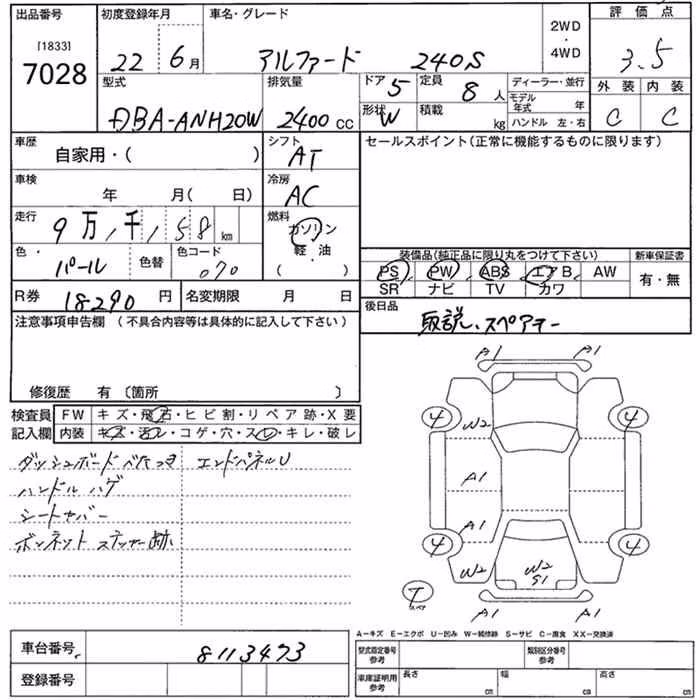 出品番号 初度登録年月 車名・グレード 2WD・4WD 評価点
[1833] 7028 22 6月 アルファード 240S 3.5
型式 排気量 ドア 5 定員 8人 ディーラー・並行 外装 内装
DBA-ANH20W 2400cc 形状 W 積載 kg モデル年式 年 ハンドル 左・右 C C
車歴 自家用・( ) シフト AT セールスポイント(正常に機能するものに限ります)
車検 年 月( 日) 冷房 AC
走行 9万1千158km 燃料 ガソリン 軽・油 ( )
色・ パール 色替 色コード 070
装備品(純正品に限り丸をつけて下さい) 新車保証書
PS PW ABS エアB AW 有・無
SR ナビ TV カワ
R券 18290円 名変期限 月 日 後日品 取説、スペアキー
注意事項申告欄(不具合内容等は具体的に記入して下さい)
修復歴 有〔箇所 〕
検査員 FW キズ・飛石・ヒビ割・リペア跡・X要
記入欄 内装 キズ・汚レ・コゲ・穴・スレ・キレ・破レ
ダッシュボードベたつき エンドパネルU
ハンドルハゲ
シートカバー
ボンネットステッカー跡
A1 A1
4 W2 4
A1
A1
4 4
W2 W2 S1 W2
T スペア
A1 A1
A-キズ E-エクボ U-凹み W-補修跡 S-サビ C-腐食 XX-交換済
車台番号 8113473 型式指定番号 参考 類別区分番号 参考
登録番号 車庫証明用 参考 長さ cm 幅 cm 高さ cm